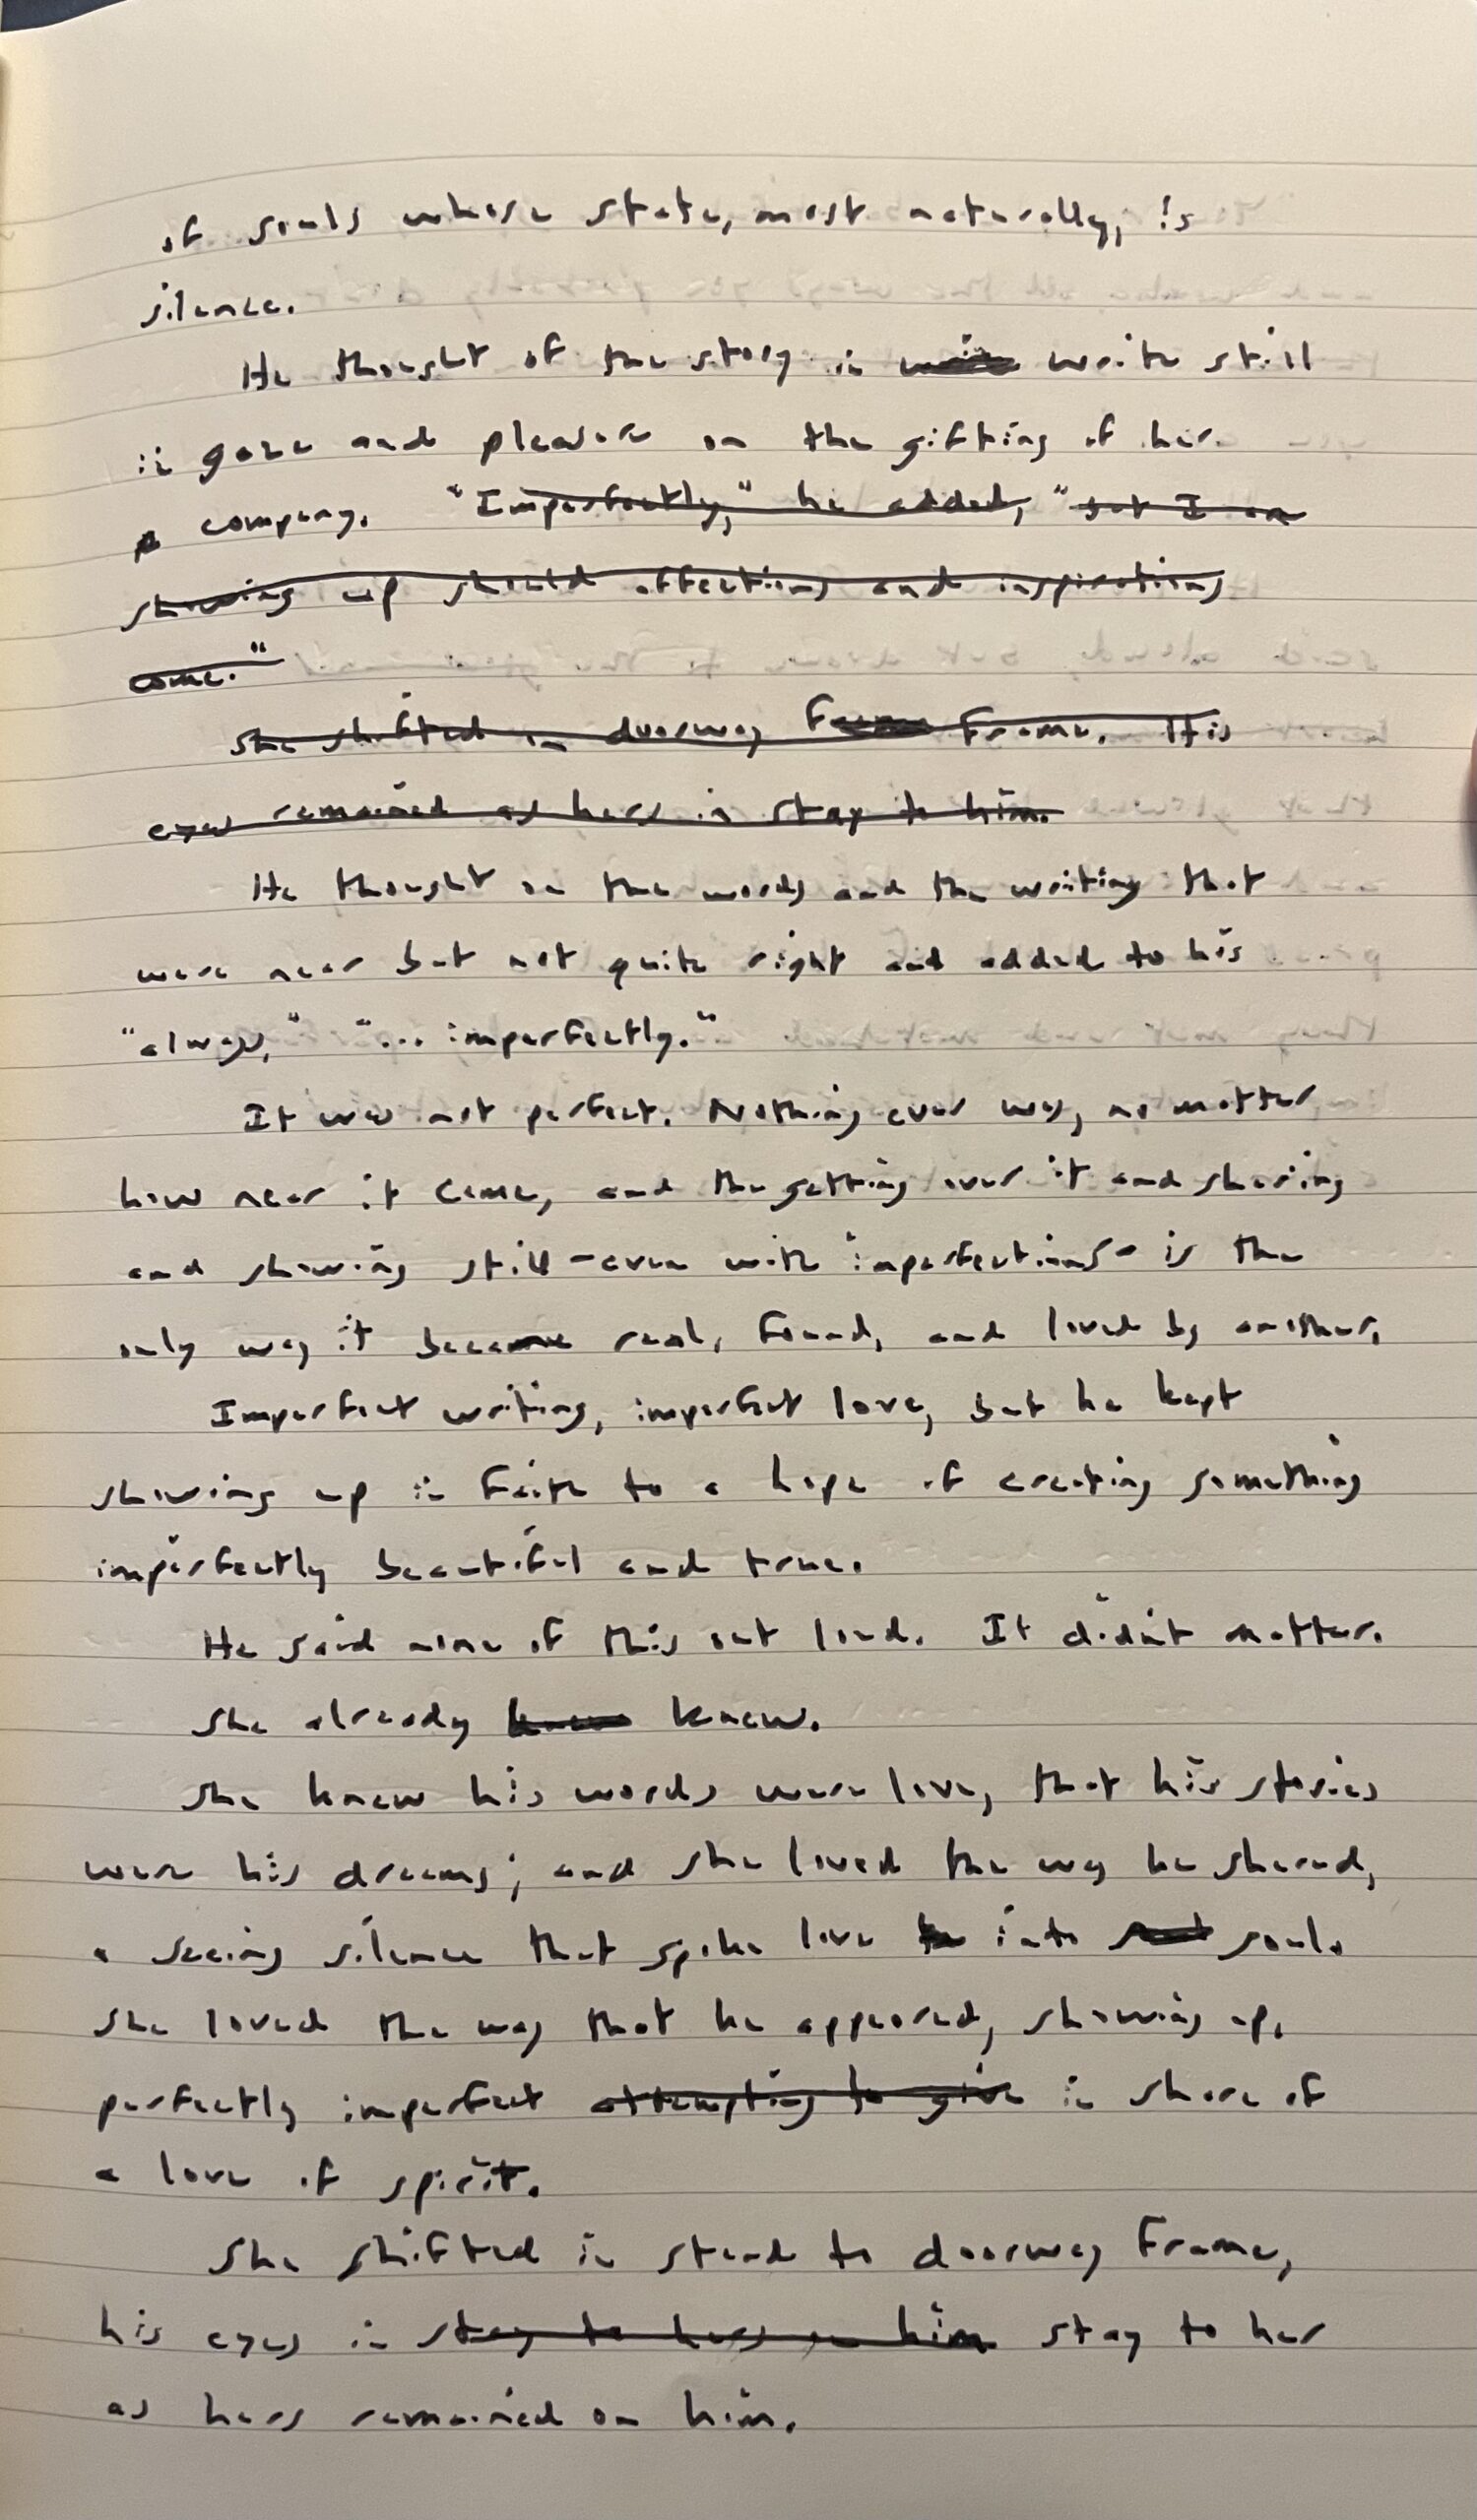 of souls whose state, most naturally, is
silence.
He thought of the story in write still
in gaze and pleasure on the gifting of her
company. "Imperfectly," he added, "but I am
showing up should affections and inspirations
come."
She shifted in doorway frame. His
eyes remained as hers in stay to him.
He thought on the words and the writing that
were near but not quite right and added to his
"always," "... imperfectly."
It was not perfect. Nothing ever was, no matter
how near it came, and the getting over it and sharing
and showing still - even with imperfections - is the
only way it became real, found, and loved by another.
Imperfect writing, imperfect love, but he kept
showing up in faith to a hope of creating something
imperfectly beautiful and true.
He said none of this out loud. It didn't matter.
She already knew knew.
She knew his words were love, that his stories
were his dreams; and she loved the way he shared,
a seeing silence that spoke love to into soul.
She loved the way that he appeared, showing up,
perfectly imperfect attempting to give in share of
a love of spirit.
She shifted in stead to doorway frame,
his eyes in stay to hers on him stay to her
as hers remained on him.